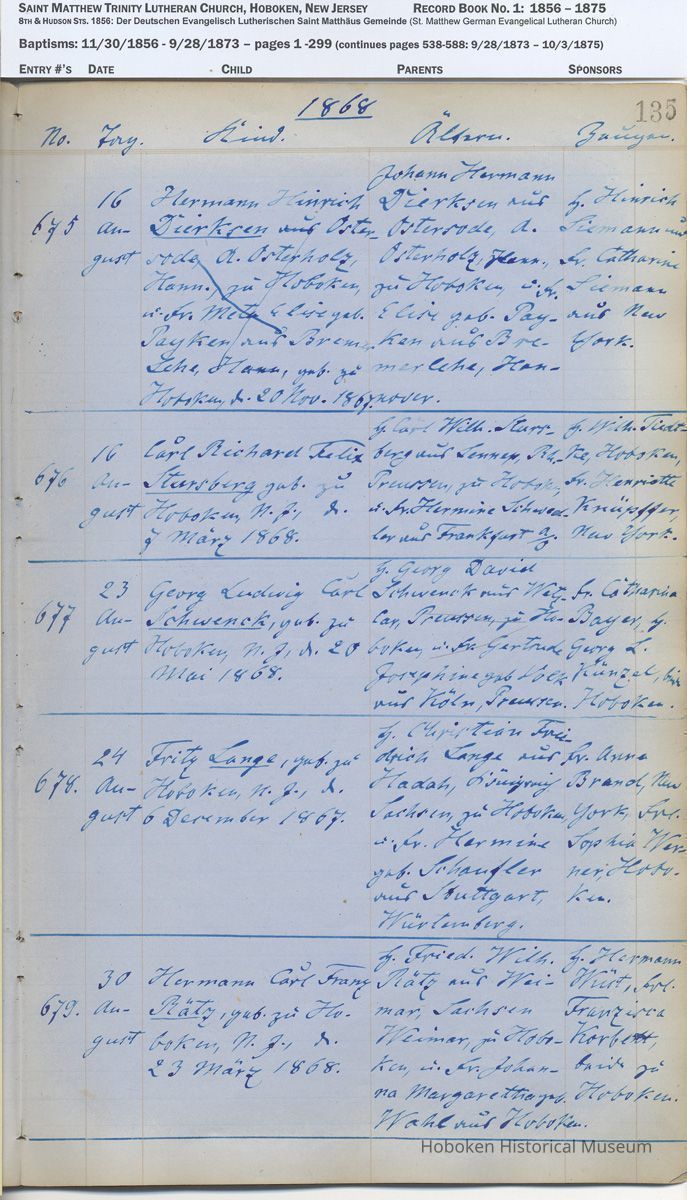 SAINT MATTHEW TRINITY LUTHERAN CHURCH, HOBOKEN, NEW JERSEY RECORD BOOK NO. 1: 1856 – 1875
8TH & HUDSON STS. 1856: Der Deutschen Evangelisch Lutherischen Saint Matthäus Gemeinde (St. Matthew German Evangelical Lutheran Church)
Baptisms: 11/30/1856 - 9/28/1873 – pages 1 -299 (continues pages 538-588: 9/28/1873 – 10/3/1875)
ENTRY #'S DATE CHILD PARENTS SPONSORS
1868
135
No. Tag. Kind. Ältern. Zeugen.
675
16
Au-
gust
Hermann Hinrich
Dierksen aus Oster-
sode, A. Osterholz,
Hann., zu Hoboken,
u. Fr. Meta Elise geb.
Payken aus Bremer
Lehe, Hann., geb. zu
Hoboken, d. 20 Nov. 1867.
Johann Hermann
Dierksen aus
Ostersode, A.
Osterholz, Hann.,
zu Hoboken, u. Fr.
Elise geb. Pay-
ken aus Bre-
merlehe, Han-
nover.
H. Hinrich
Siemann und
Fr. Catharine
Siemann
aus New
York.
676
16
Au-
gust
Carl Richard Felix
Stursberg geb. zu
Hoboken, N. J., d.
7 März 1868.
H. Carl Wilh. Sturs-
berg aus Lennep,
Preussen, zu Hoboken,
u. Fr. Hermine
aus Frankfurt a/
H. Wilh.
Hoboken,
Fr. Henriette
Knüpffer,
New York.
677
23
Au-
gust
Georg Ludwig Carl
Schwenck, geb. zu
Hoboken, N. J., d. 20
Mai 1868.
H. Georg David
Schwenck aus Wetz-
lar, Preussen, zu Ho-
boken, u. Fr. Gertrude
Josephine geb. Volk
aus Köln, Preussen.
Fr. Catharina
Bayer, H.
Georg L.
Künzel, beide
Hoboken.
678.
24
Au-
gust
Fritz Lange, geb. zu
Hoboken, N. J., d.
6 December 1867.
H. Christian Frie-
drich Lange aus
Königreich
Sachsen, zu Hoboken,
u. Fr. Hermine
geb. Schaufler
aus Stuttgart,
Würtemberg.
Fr. Anna
Brand, New
York, Frl.
Sophia Wer-
ner, Hobo-
ken.
679.
30
Au-
gust
Hermann Carl Franz
Rätz, geb. zu Ho-
boken, N. J., d.
23 März 1868.
H. Fried. Wilh.
Rätz aus Wei-
mar, Sachsen
Weimar, zu Hobo-
ken, u. Fr. Johan-
na Margaretha geb.
Wahl aus Hoboken.
H. Hermann
Wüst, Frl.
Franzisca
beide zu
Hoboken.
Hoboken Historical Museum